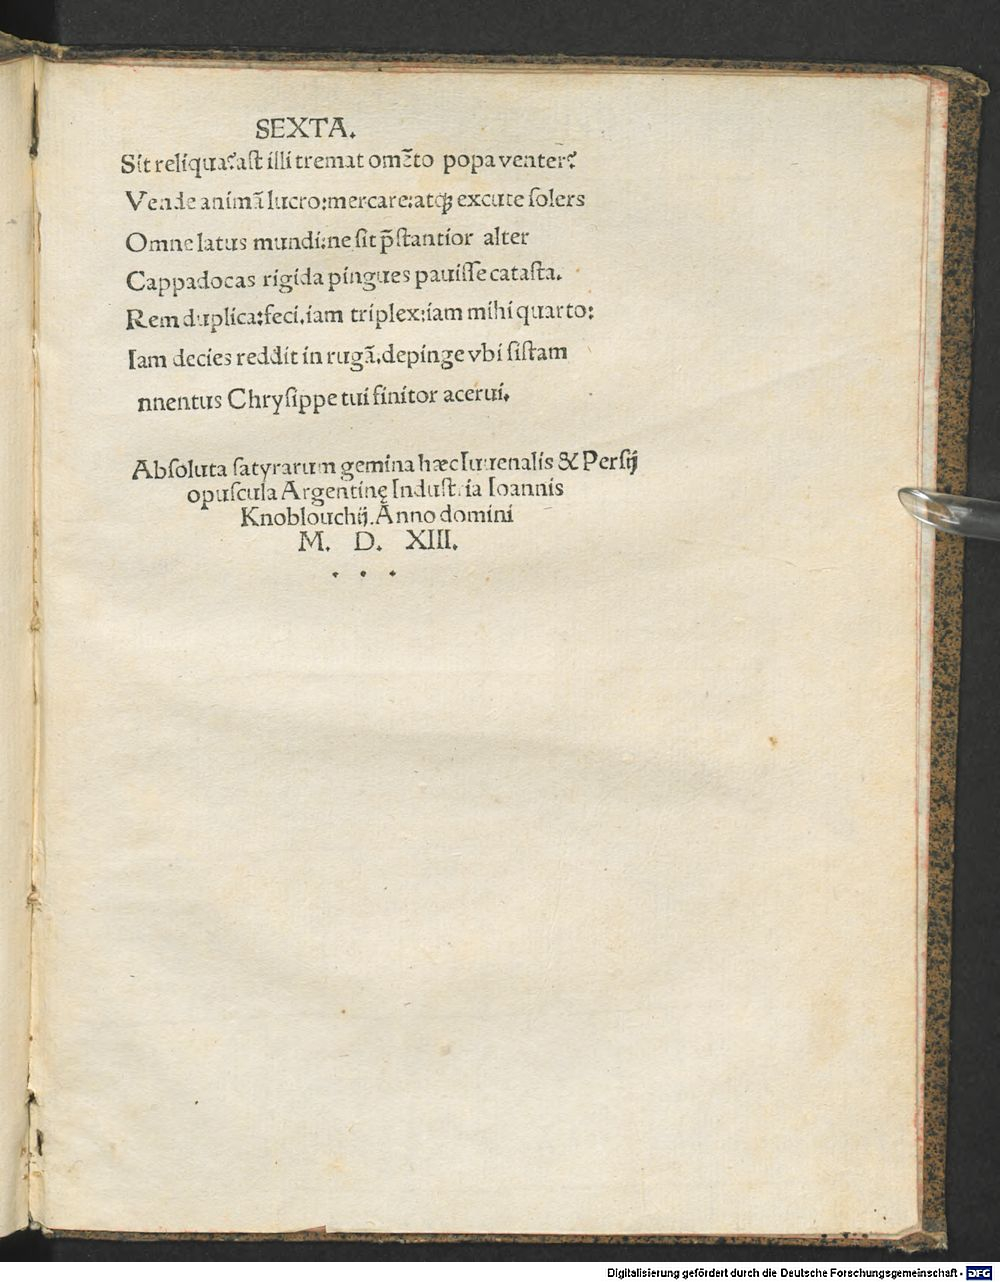 SEXTA.
Sit reliqua? aſt illi tremat omẽto popa venter?
Vende animã lucro: mercare: atqꝫ excute ſolers
Omne latus mundi: ne ſit p̄ſtantior alter
Cappadocas rigida pingues pauiſſe cataſta.
Rem duplica: feci. iam triplex: iam mihi quarto:
Iam decies reddit in rugã. depinge vbi ſiſtam
nnentus Chryſippe tui finitor acerui.
Abſoluta ſatyrarum gemina hæc Iuuenalis & Perſij
opuſcula Argentinę Induſtria Ioannis
Knoblouchij. Anno domini
M. D. XIII.
. . .
Digitalisierung gefördert durch die Deutsche Forschungsgemeinschaft - DFG